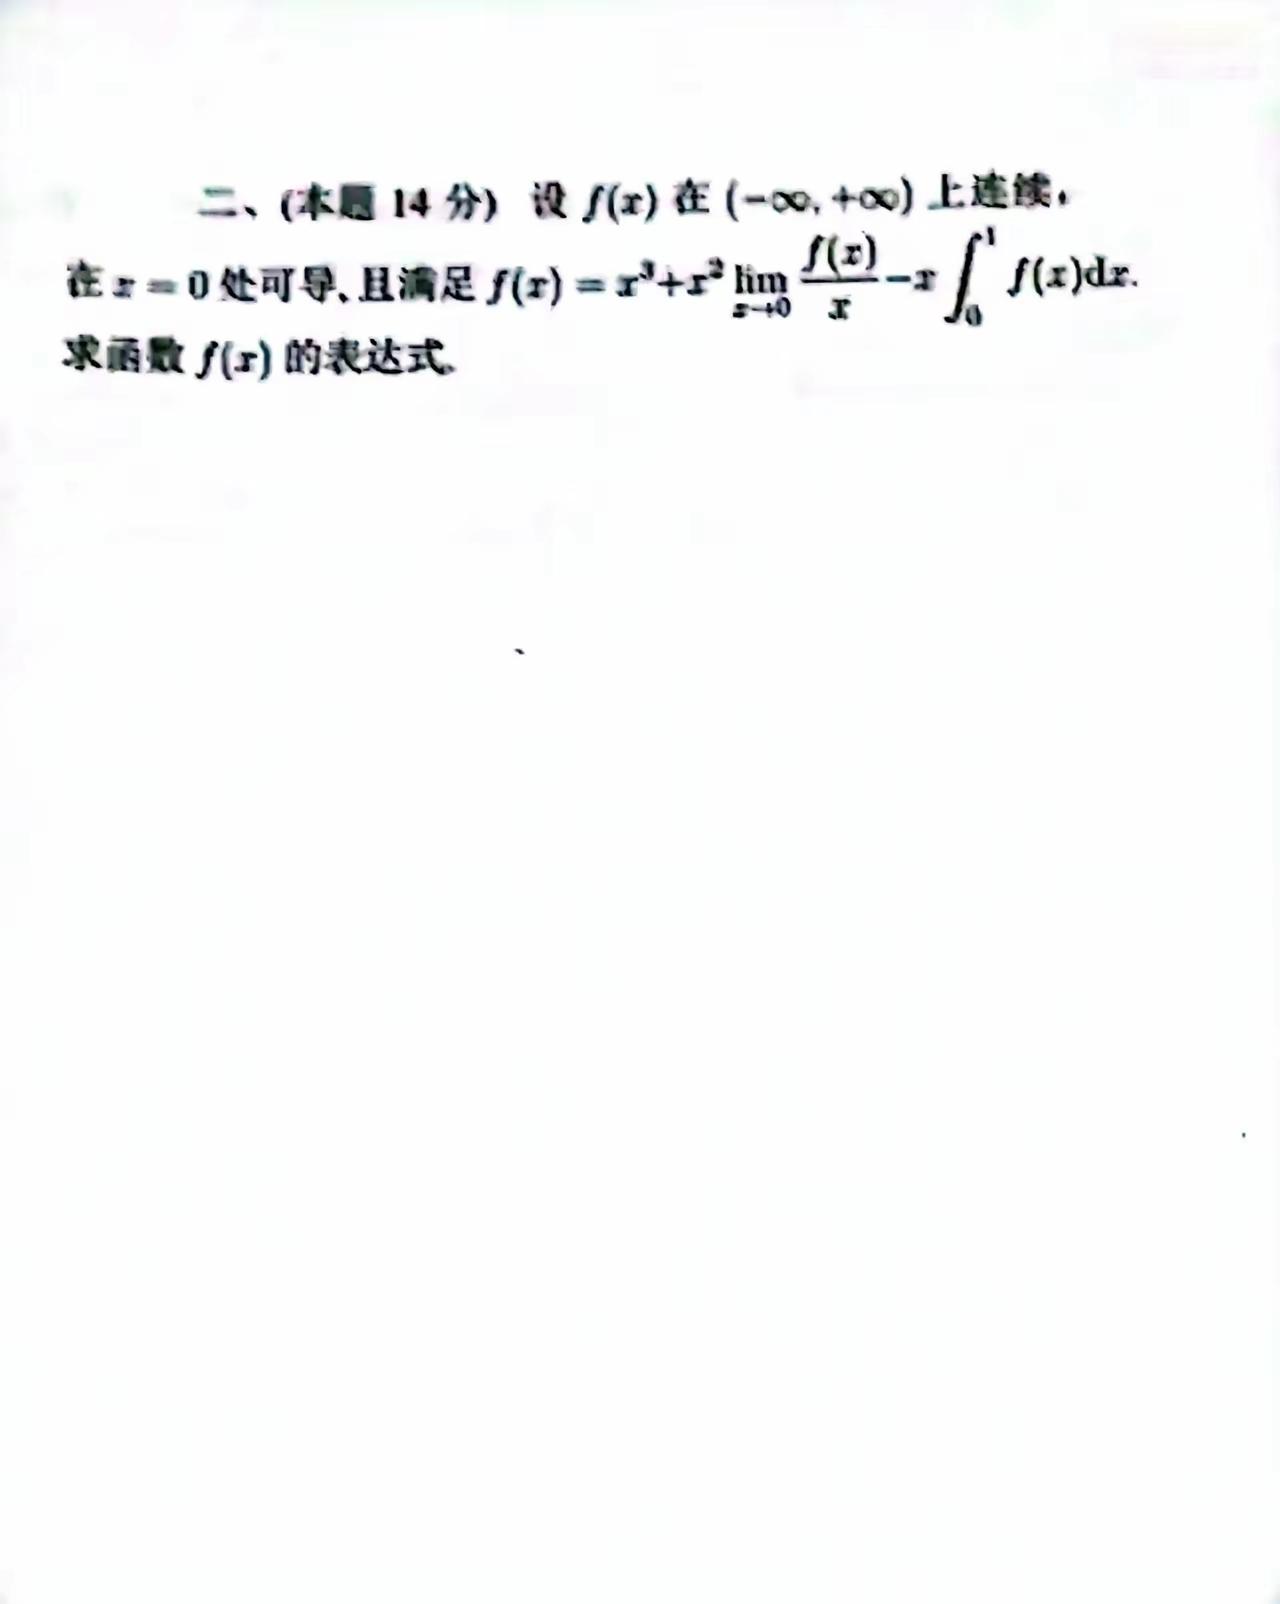 二、(本题 14 分) 设 f(x) 在 (-∞, +∞) 上连续,
在 x = 0 处可导, 且满足 f(x) = x³+x² lim_{x→0} f(x)/x − x ∫₀¹ f(x)dx.
求函数 f(x) 的表达式.